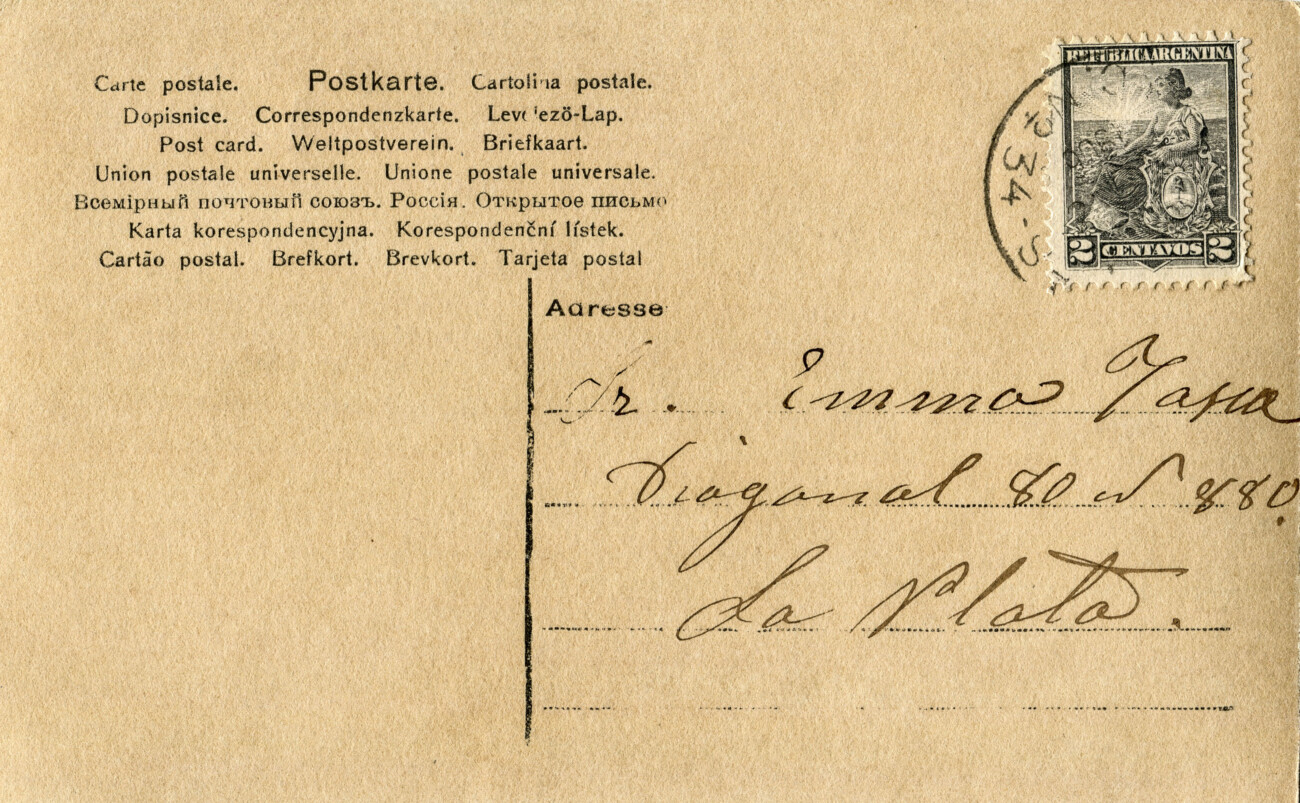 Carte postale. Postkarte. Cartolina postale.
Dopisnice. Correspondenzkarte. Levelező-Lap.
Post card. Weltpostverein. Briefkaart.
Union postale universelle. Unione postale universale.
Всемірный почтовый союзъ. Россія. Открытое письмо
Karta korespondencyjna. Korespondenční lístek.
Cartão postal. Brefkort. Brevkort. Tarjeta postal
REPUBLICA ARGENTINA
2 CENTAVOS 2
34
Adresse
Sr. Emma
Diagonal 80 Nº 880.
La Plata.